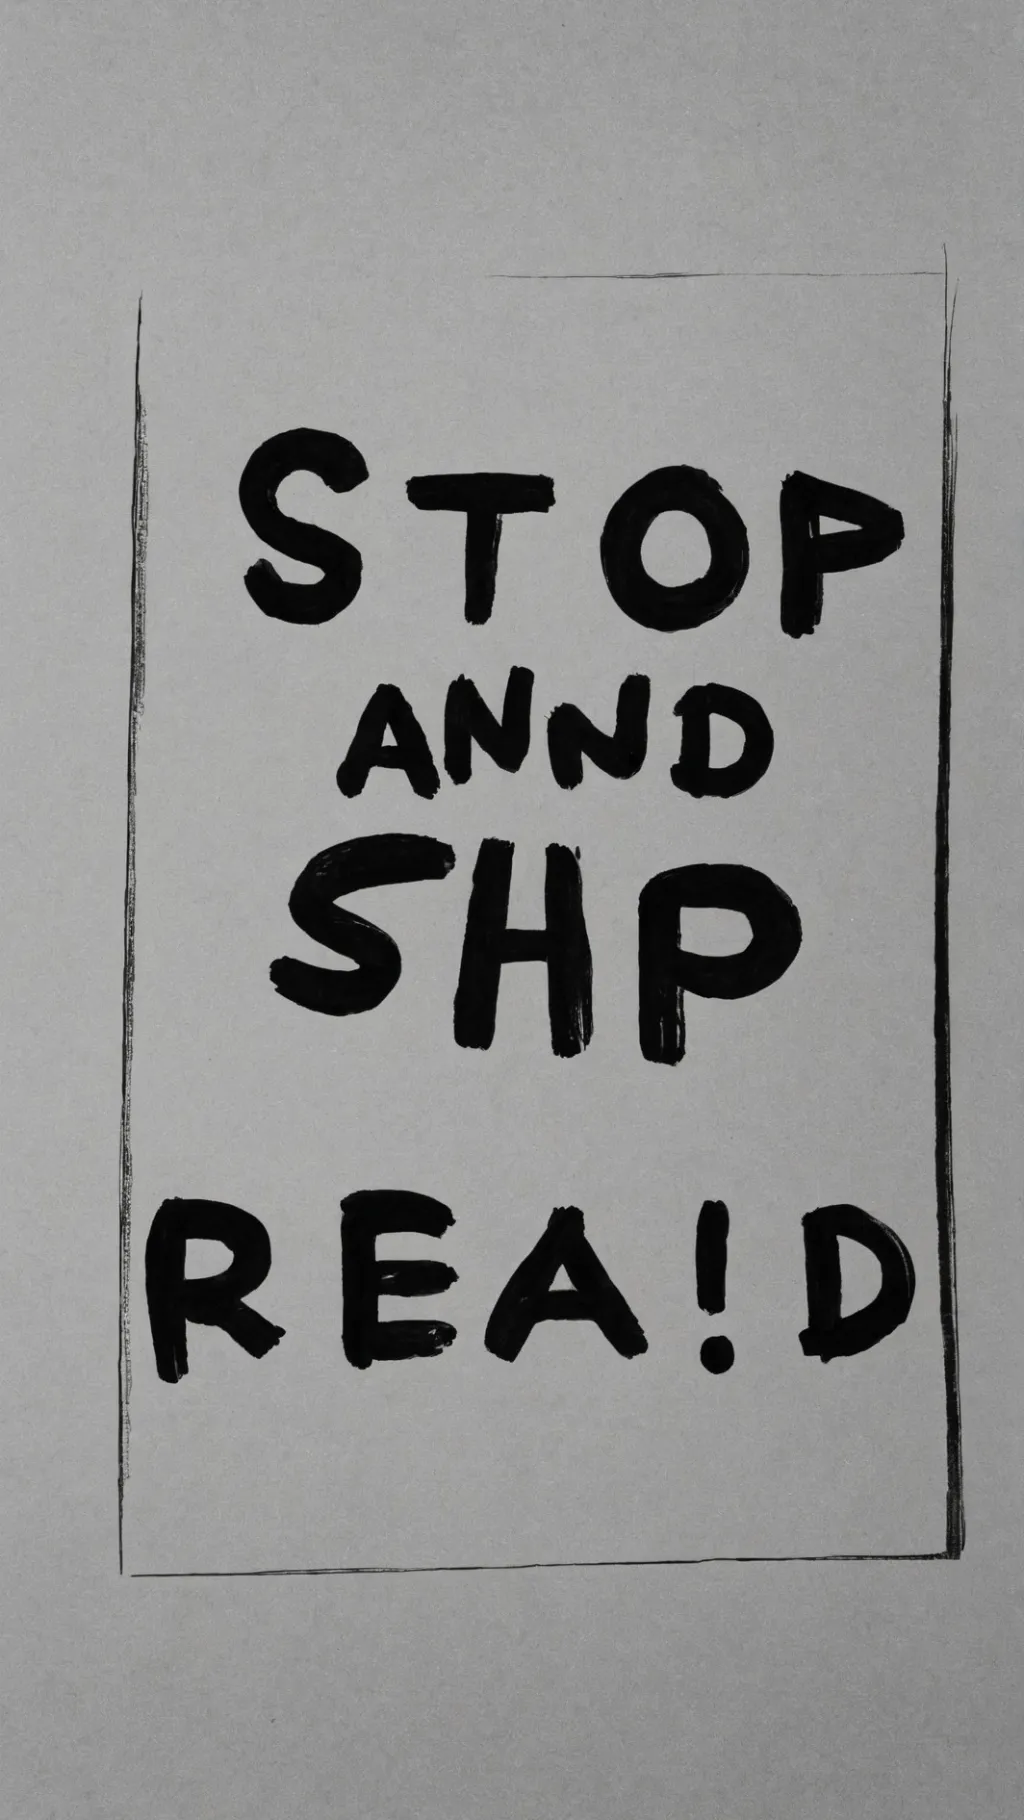 STOP
ANND
SHP
REA!D